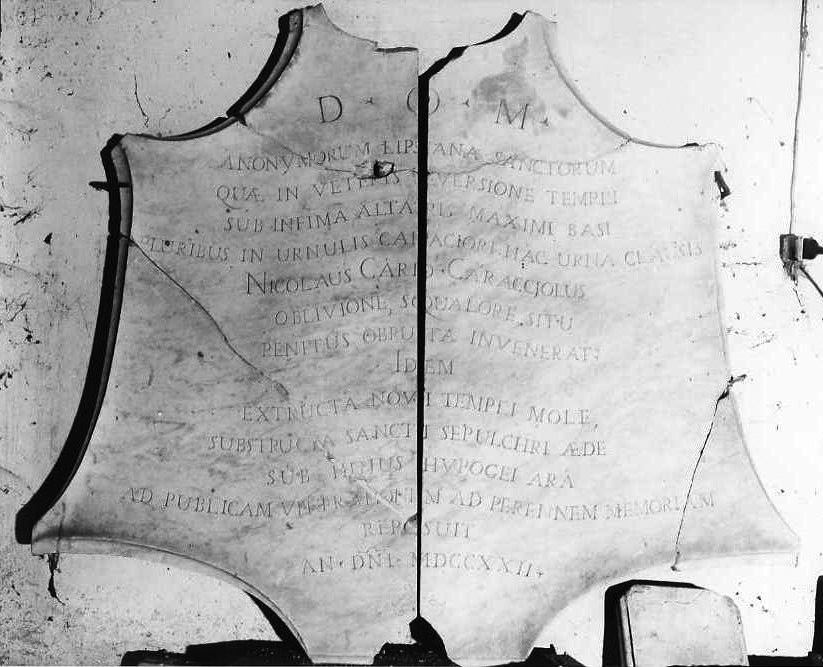 D · O · M ·
ANONYMORUM LIPSANA SANCTORUM
QUÆ IN VETERIS EVERSIONE TEMPLI
SUB INFIMA ALTARIS MAXIMI BASI
PLURIBUS IN URNULIS CAPACIORI HAC URNA CLAUSIS
NICOLAUS CARD · CARACCIOLUS
OBLIVIONE, SQUALORE, SITU
PENITUS OBRUTA INVENERAT;
IDEM
EXTRUCTA NOVI TEMPLI MOLE,
SUBSTRUCTA SANCTI SEPULCHRI ÆDE
SUB HUIUS HYPOGEI ARÂ
AD PUBLICAM VENERATIONEM AD PERENNEM MEMORIAM
REPOSUIT
AN · DÑI · MDCCXXII ·